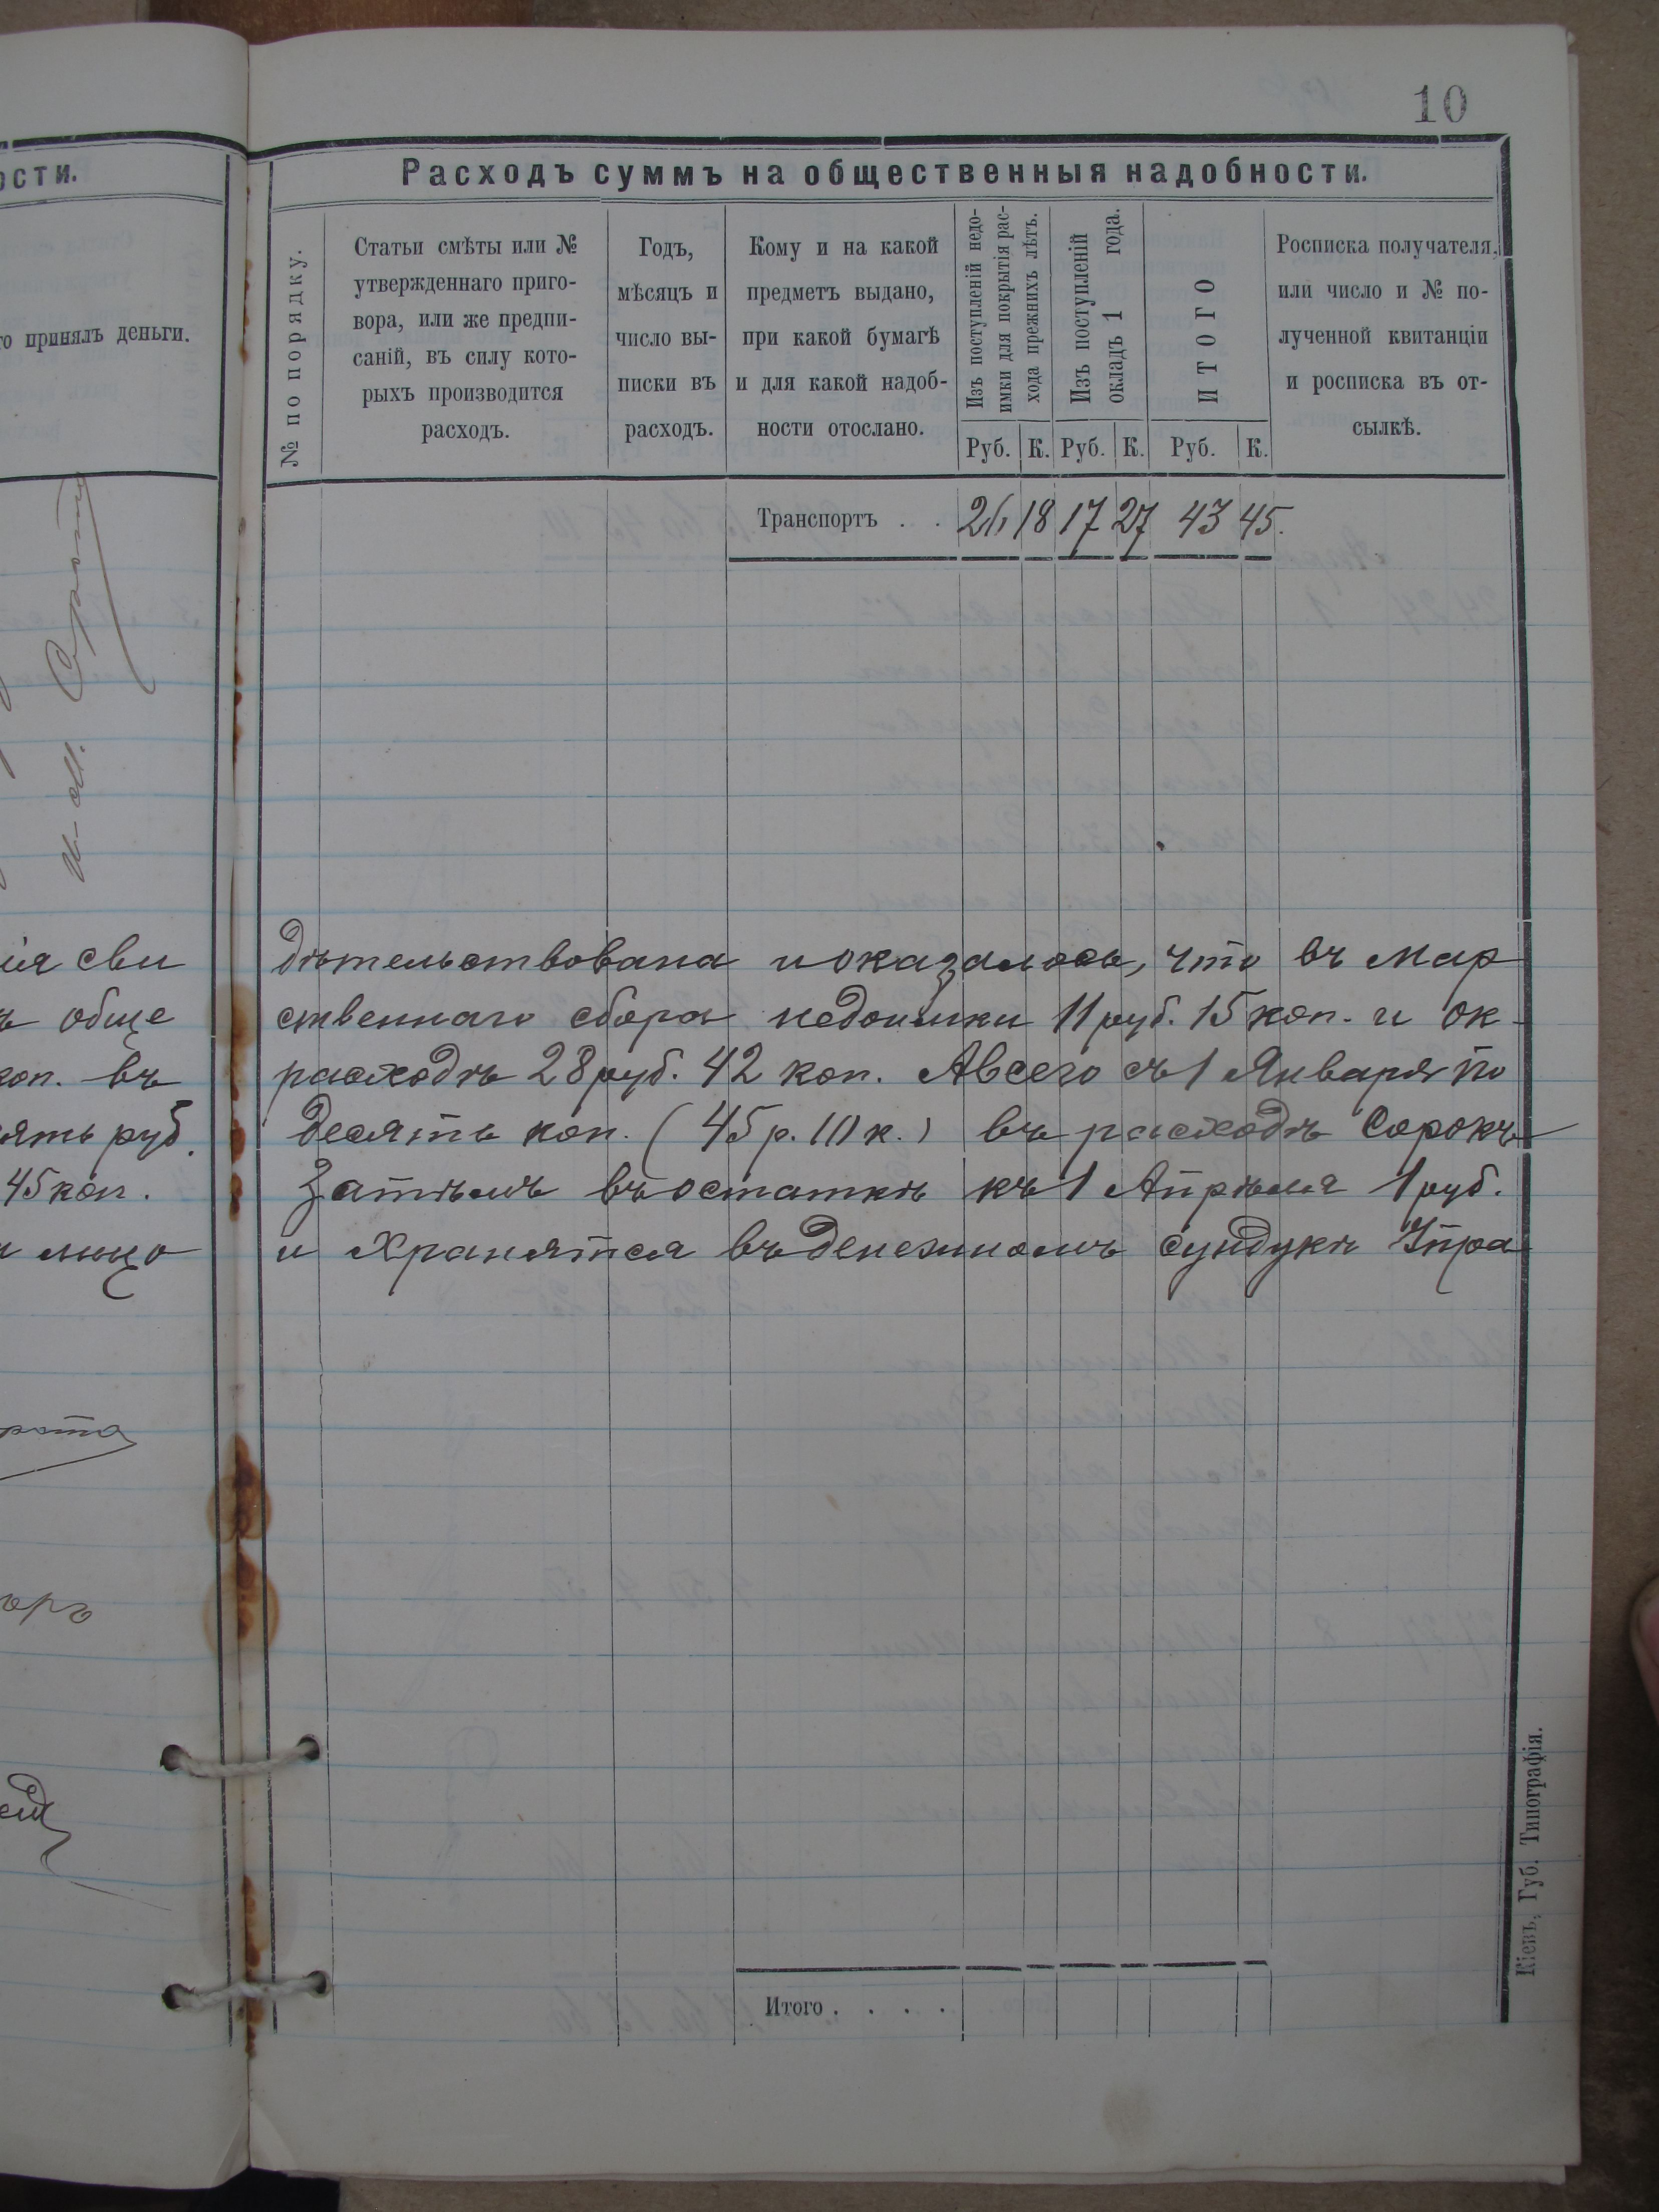 10
ости.
го принялъ деньги.
Расходъ суммъ на общественныя надобности.
№ по порядку.
Статьи смѣты или №
утвержденнаго приго-
вора, или же предпи-
саній, въ силу кото-
рыхъ производится
расходъ.
Годъ,
мѣсяцъ и
число вы-
писки въ
расходъ.
Кому и на какой
предметъ выдано,
при какой бумагѣ
и для какой надоб-
ности отослано.
Изъ поступленій недо-
имки для покрытія рас-
хода прежнихъ лѣтъ.
Изъ поступленій
окладъ 1 года.
ИТОГО
Росписка получателя,
или число и № по-
лученной квитанціи
и росписка въ от-
сылкѣ.
Руб. К. Руб. К. Руб. К.
Транспортъ . . 26 18 17 27 43 45.
ія сви дѣтельствована и оказалось, что въ Мар
ъ обще ственнаго сбора недоимки 11 руб. 15 коп. и ок-
коп. въ расходѣ 28 руб. 42 коп. А всего съ 1 Января по
ять руб. десять коп. (45 р. 10 к.) въ расходѣ Сорокъ
45 коп. Затѣмъ въ остаткѣ къ 1 Апрѣля 1 руб.
и Хранятся въ денежномъ сундукѣ Упра
Итого . . . .
Кіевъ, Губ. Типографія.